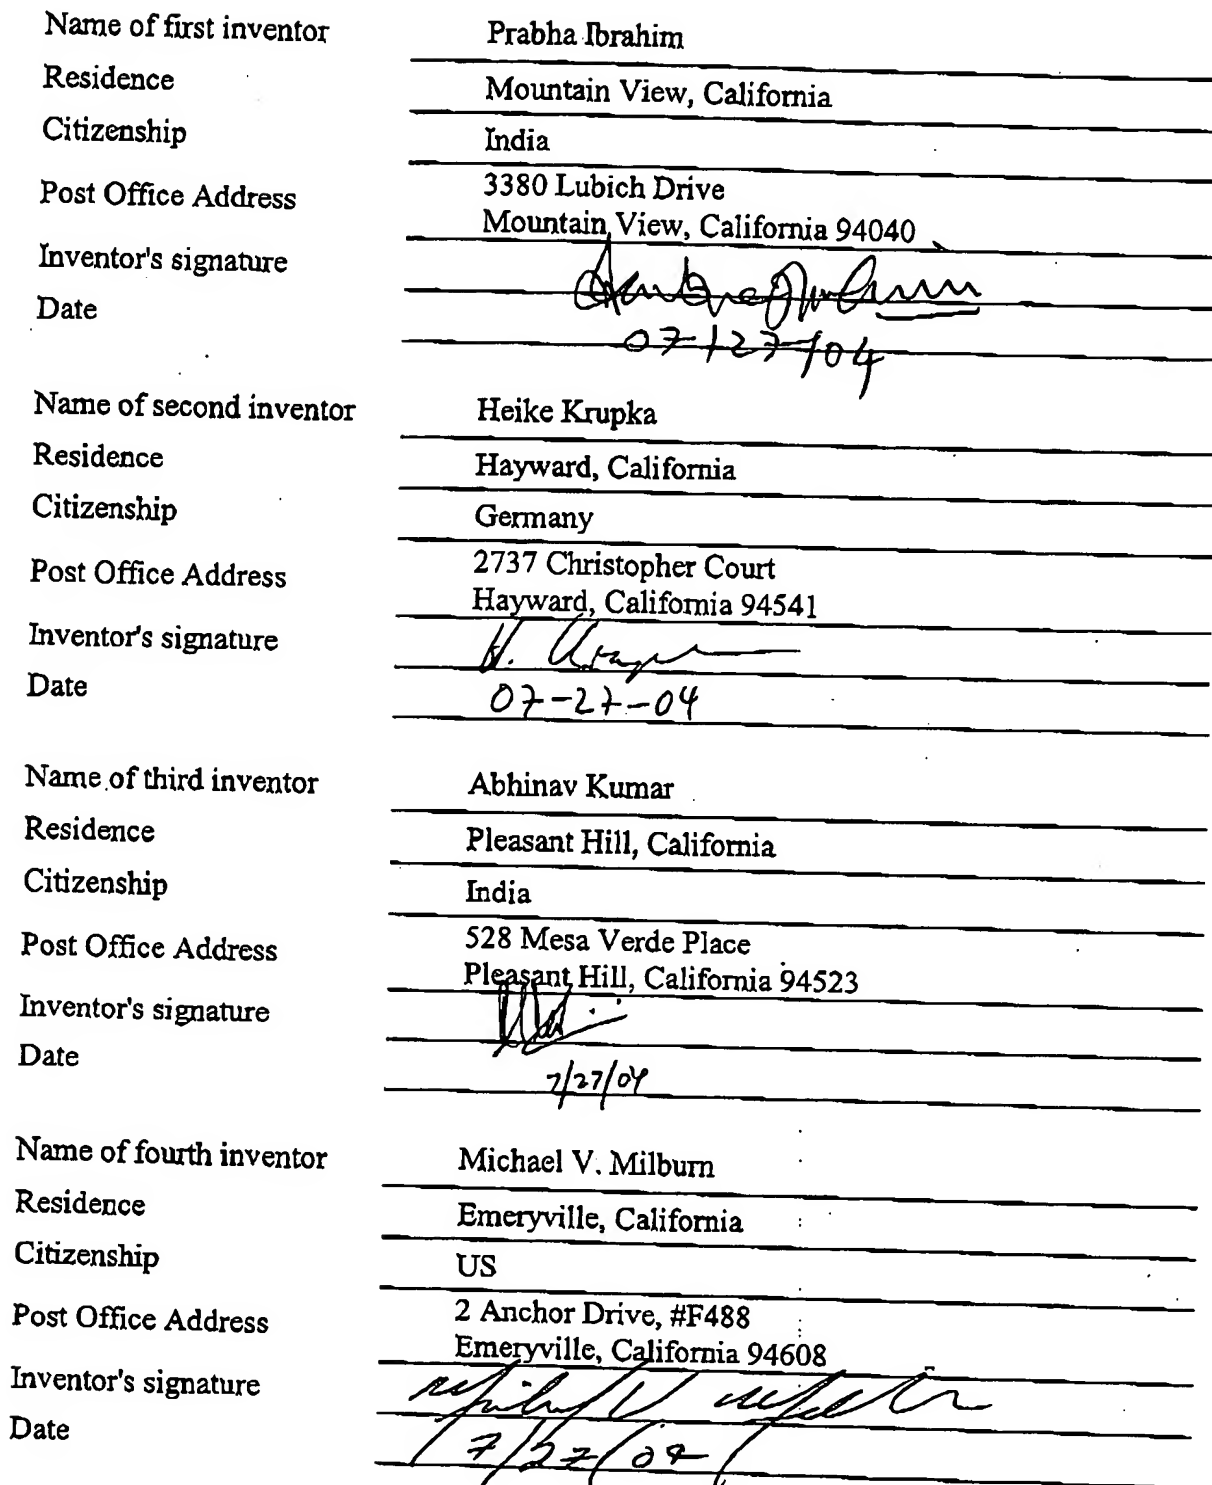 Name of first inventor Prabha Ibrahim
Residence Mountain View, California
Citizenship India
Post Office Address 3380 Lubich Drive
Mountain View, California 94040
Inventor's signature
Date 07/27/04
Name of second inventor Heike Krupka
Residence Hayward, California
Citizenship Germany
Post Office Address 2737 Christopher Court
Hayward, California 94541
Inventor's signature H. Krupka
Date 07-27-04
Name of third inventor Abhinav Kumar
Residence Pleasant Hill, California
Citizenship India
Post Office Address 528 Mesa Verde Place
Pleasant Hill, California 94523
Inventor's signature
Date 7/27/04
Name of fourth inventor Michael V. Milburn
Residence Emeryville, California
Citizenship US
Post Office Address 2 Anchor Drive, #F488
Emeryville, California 94608
Inventor's signature
Date 7/27/04